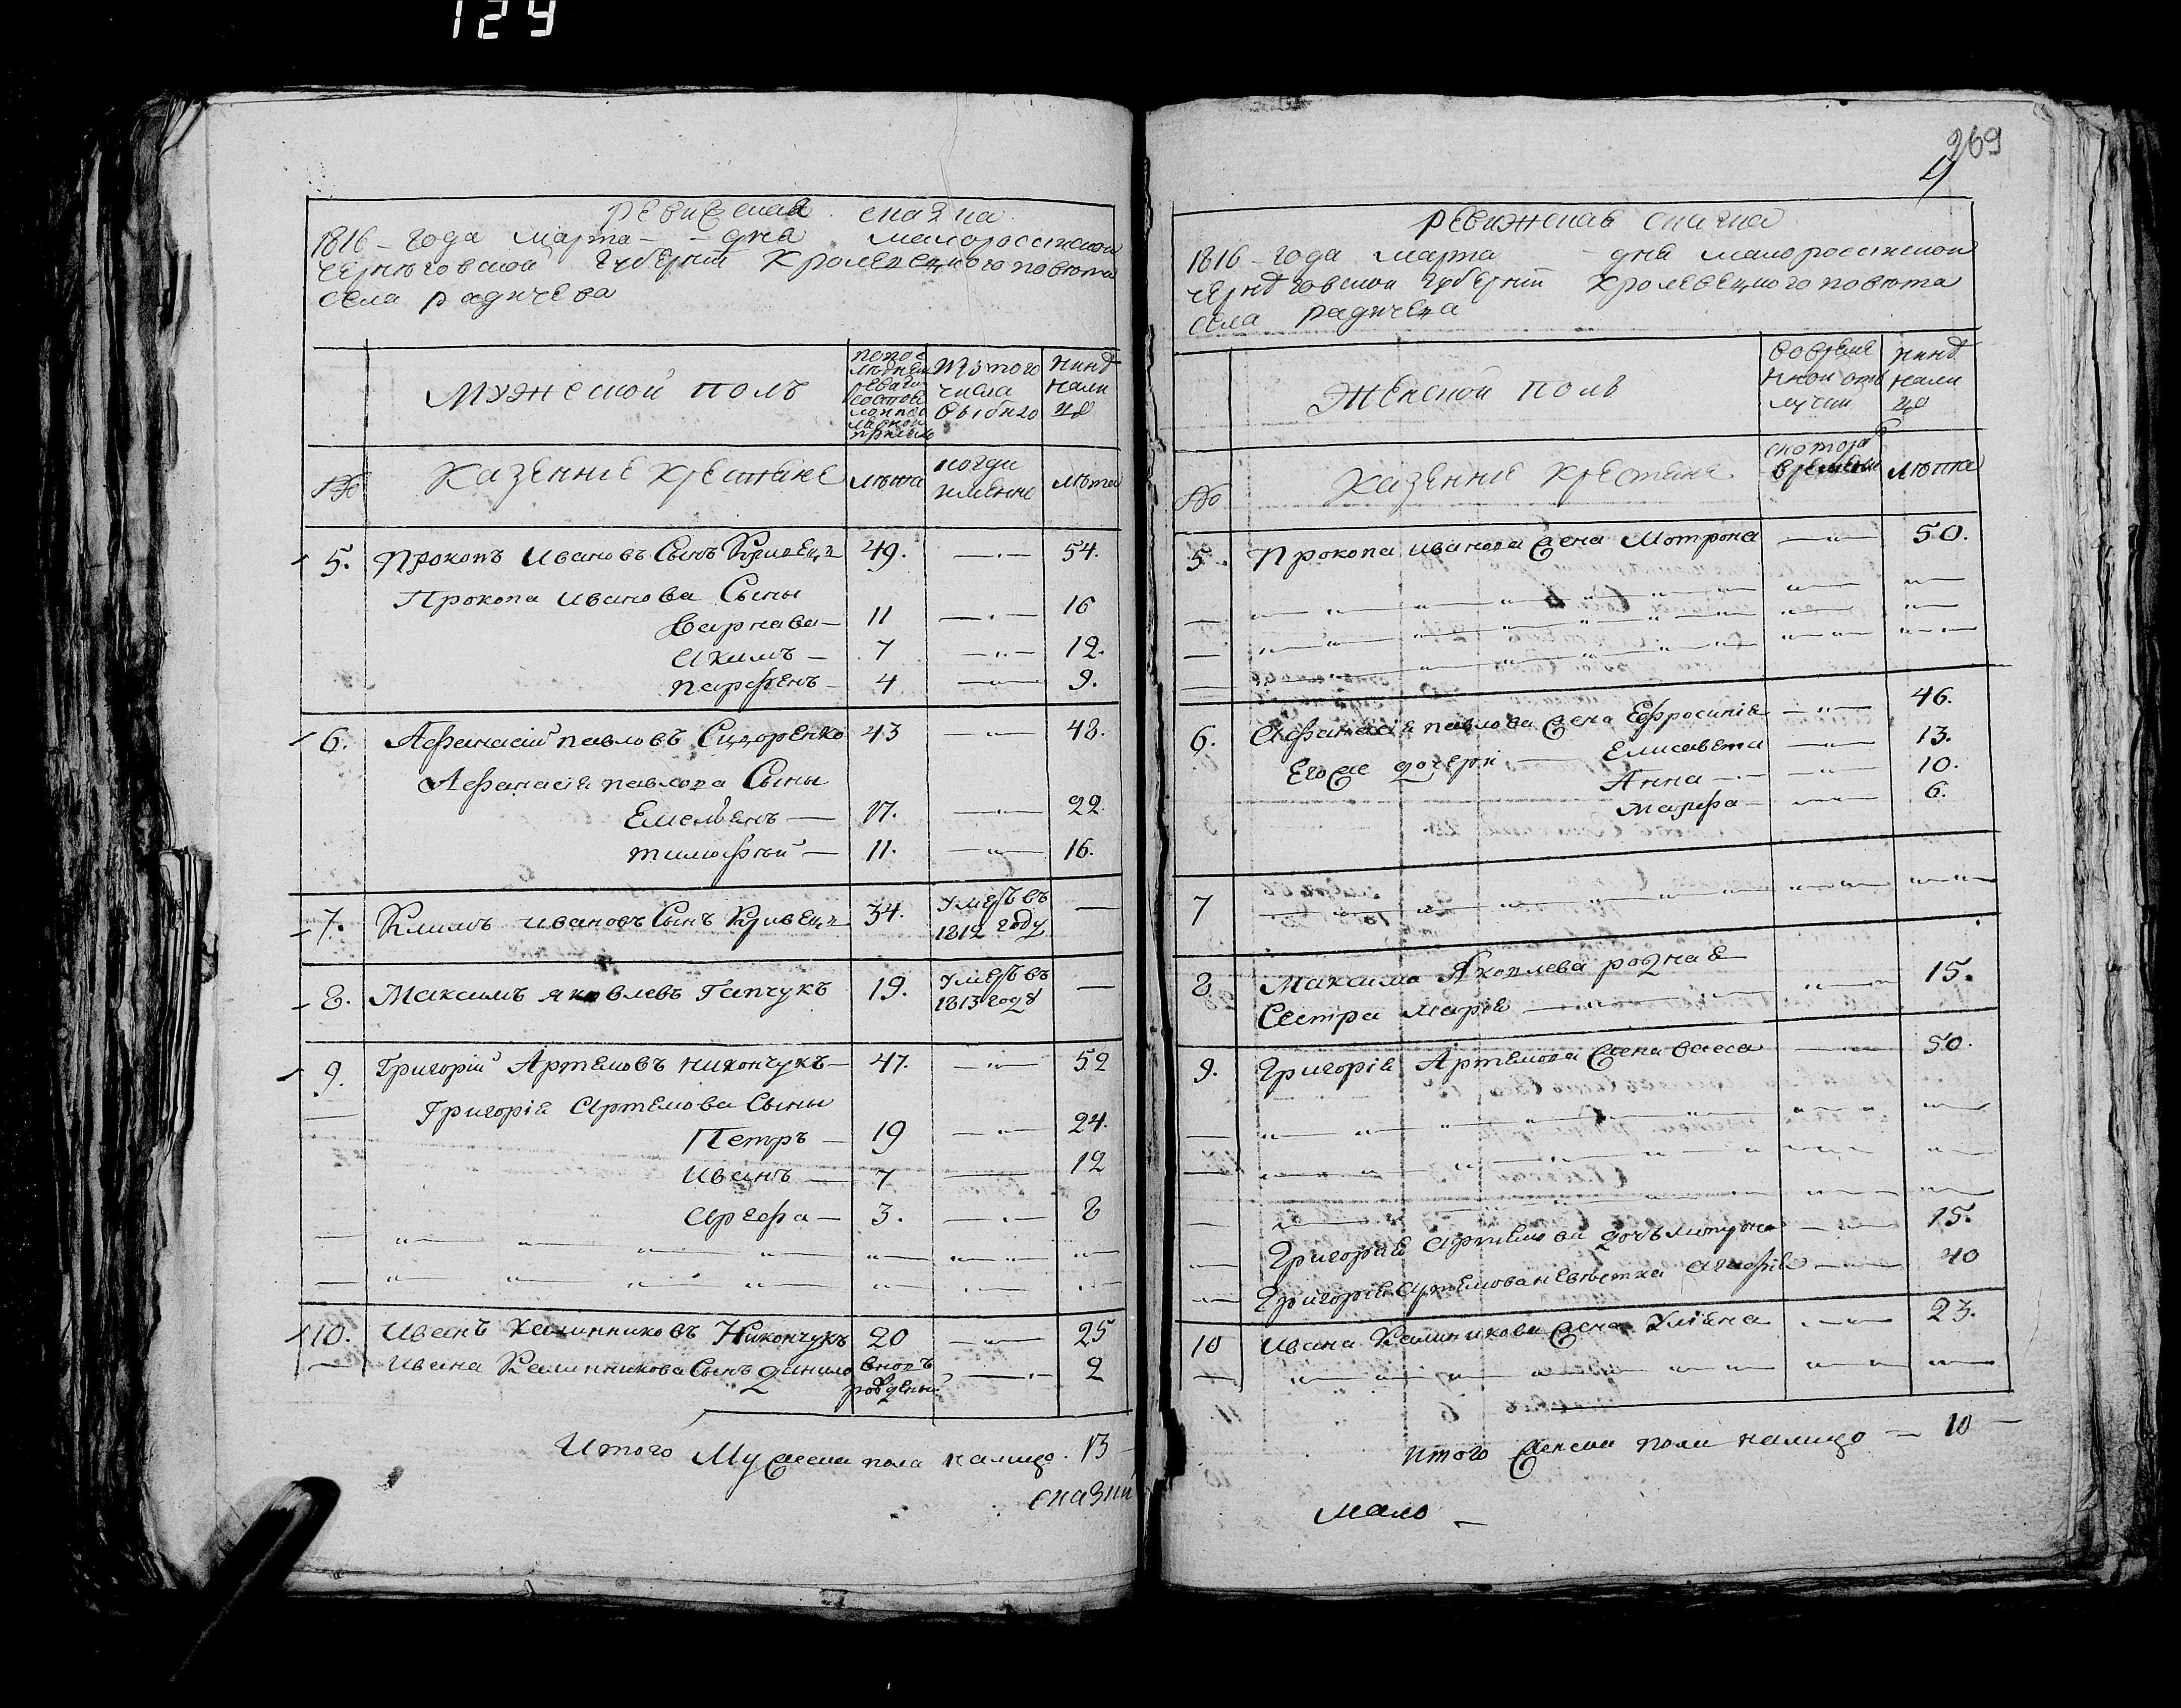 129
Ревижская сказка
1816 - года марта - - дня малоросснской
Чернѣговской губернѣи Кролевецкого повѣта
Села радичева
Мужеской полъ
попос
лѣдней
реви
состоя
ло
изтого
числа
выбило
нинѣ
нали
цо
№
Казенние крестяне
лѣта
когда
именно
лѣта
5. Прокопъ Ивановъ Сынъ Кривецъ 49. — 54.
Прокопа Иванова Сыны
Варнава — 11 — 16
Акимъ — 7 — 12.
парфенъ — 4 — 9.
6. Афанасій павловъ Сидоренко 43 — 48.
Афанасія павлова Сыны
Емельянъ — 17. — 22.
тимофѣй — 11. — 16.
7. Климъ ивановъ Сынъ Кривецъ 34. Умеръ въ 1812 году —
8. Максимъ яковлевъ Гапчукъ 19. Умеръ въ 1813 годѣ —
9. Григорій Артемовъ никончукъ — 47. — 52
Григорія Артемова Сыны
Петръ — 19 — 24.
Иванъ — 7 — 12
Арефа — 3. — 8
10. Иванъ Калинниковъ Никончукъ 20 — 25
— Ивана Калинникова Сынъ данило вновъ рожденый — 2
Итого Мужеска пола налицо. 13 —
сказки
269
4
ревижская скаска
1816 - года марта - дня малоросснской
чернѣговской губернѣи Кролевецкого повѣта
села радичева
Женской полъ
вовреме
нной отъ
лучки
нинѣ
нали
цо
№
Казенние крестяне
скотораго
времени
лѣта
5 Прокопа иванова жена Мотрона — 50.
6. Афанасія павлова жена Ефросинія — 46.
Егоже дочери — Елисавета — 13.
Анна — 10.
Марфа — 6.
7
8 Максима Яковлева родная
Сестра Марія — 15.
9. Григорія Артемова жена васса — 50.
Григорія Артемова дочь мотрона — 15.
Григорія Артемова невѣстка Агафія — 40
10 Ивана Калиникова жена Уліяна — 23.
Итого женска пола налицо — 10 —
мало —